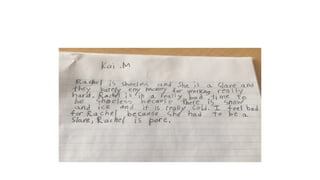 Kai .M
Rachel is shoeless and she is a slave and
they barely eny money for working really
hard. Rachel is in a really bad time to
be shoeless because there is snow
and ice and it is really cold. I feel bad
for Rachel because she had to be a
slave, Rachel is pore.